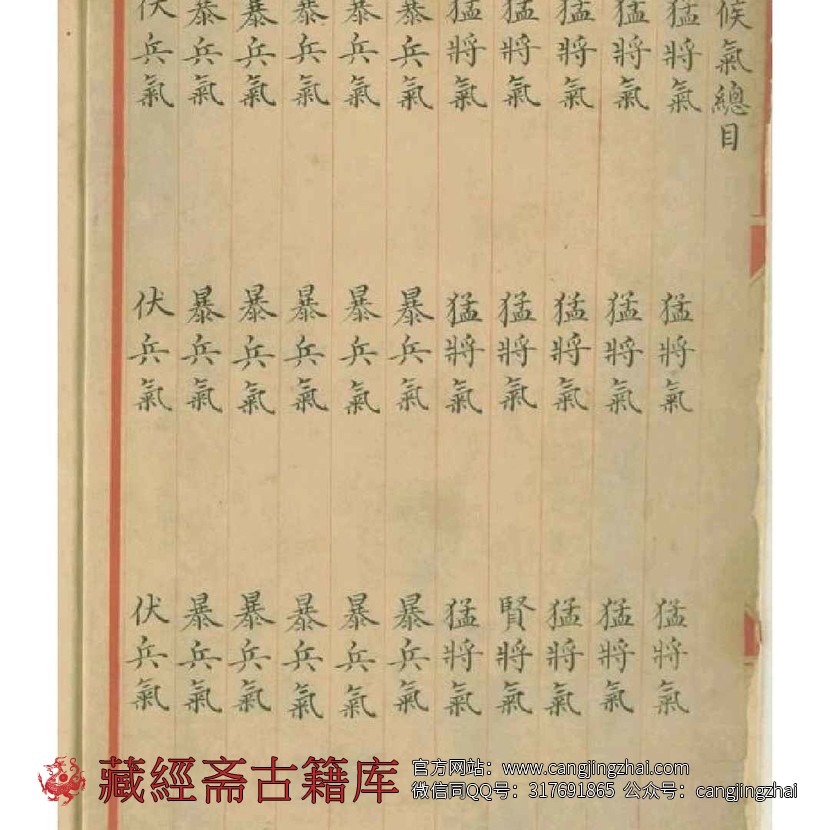 候氣總目
猛將氣 猛將氣 猛將氣
猛將氣 猛將氣 猛將氣
猛將氣 猛將氣 猛將氣
猛將氣 猛將氣 賢將氣
猛將氣 猛將氣 猛將氣
暴兵氣 暴兵氣 暴兵氣
暴兵氣 暴兵氣 暴兵氣
暴兵氣 暴兵氣 暴兵氣
暴兵氣 暴兵氣 暴兵氣
暴兵氣 暴兵氣 暴兵氣
伏兵氣 伏兵氣 伏兵氣
藏經斋古籍库
官方网站：www.cangjingzhai.com
微信同QQ号：317691865 公众号：cangjingzhai